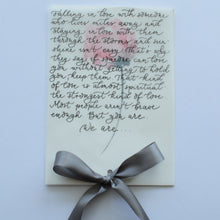 Falling in love with someone
who lives miles away and
staying in love with them
through the storms and sun
shine isn't easy. That's why
they say if someone can love
you without getting to hold
you, keep them. That kind
of love is almost spiritual
the strongest kind of love
Most people aren't brave
enough. But you are
We are...